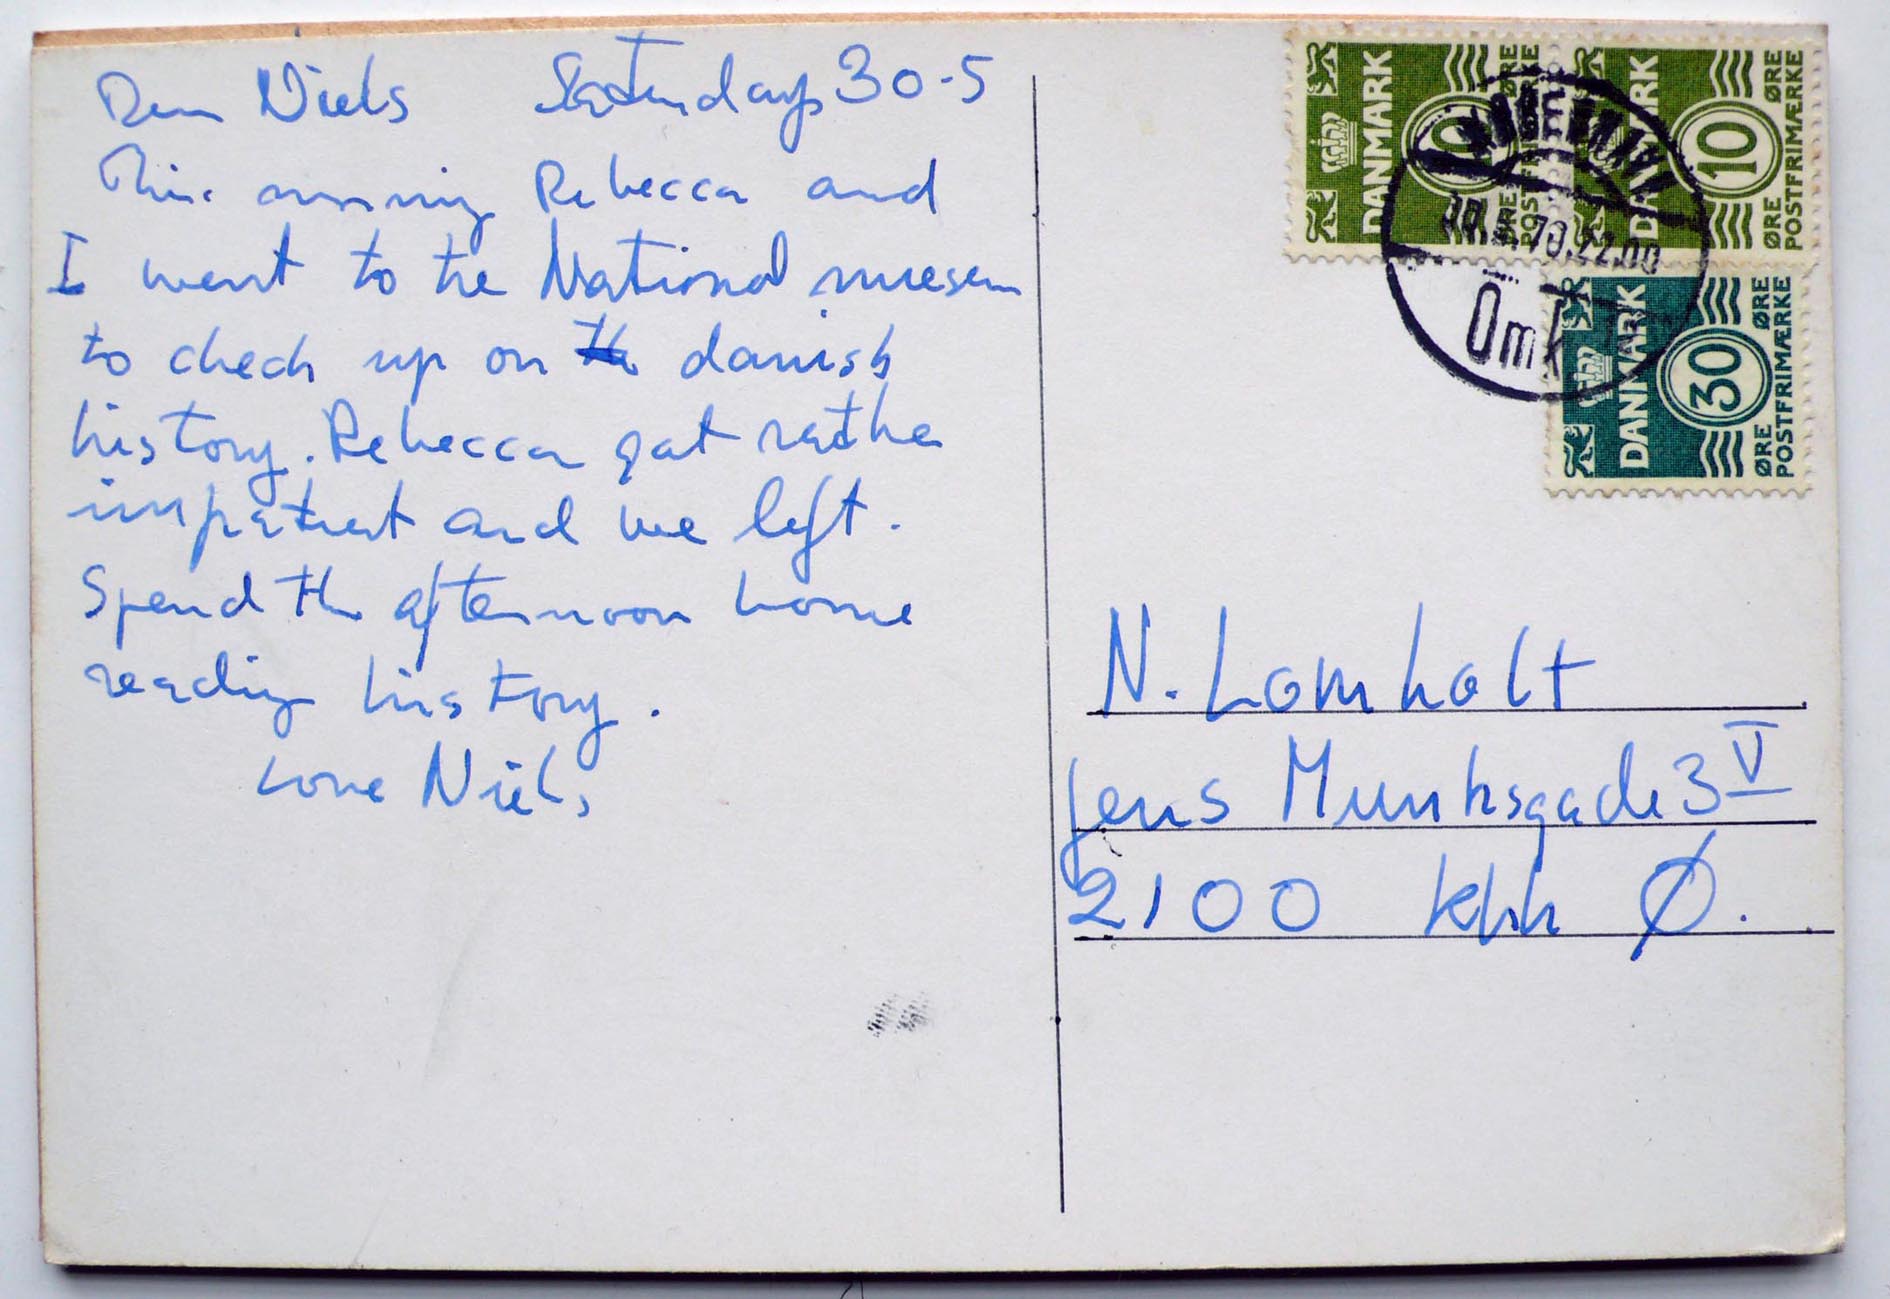 Dear Niels Saturday 30-5
This morning Rebecca and
I went to the National museum
to check up on danish
history. Rebecca gat rather
impatient and we left.
Spend the afternoon home
reading history.
Love Niels
DANMARK 10 ØRE ØRE POSTFRIMÆRKE
DANMARK 10 ØRE ØRE POSTFRIMÆRKE
KØBENHAVN
30.5.70.22.00
Omk
DANMARK 30 ØRE ØRE POSTFRIMÆRKE
N. Lomholt
Jens Munksgade 3 V
2100 Kbh Ø.